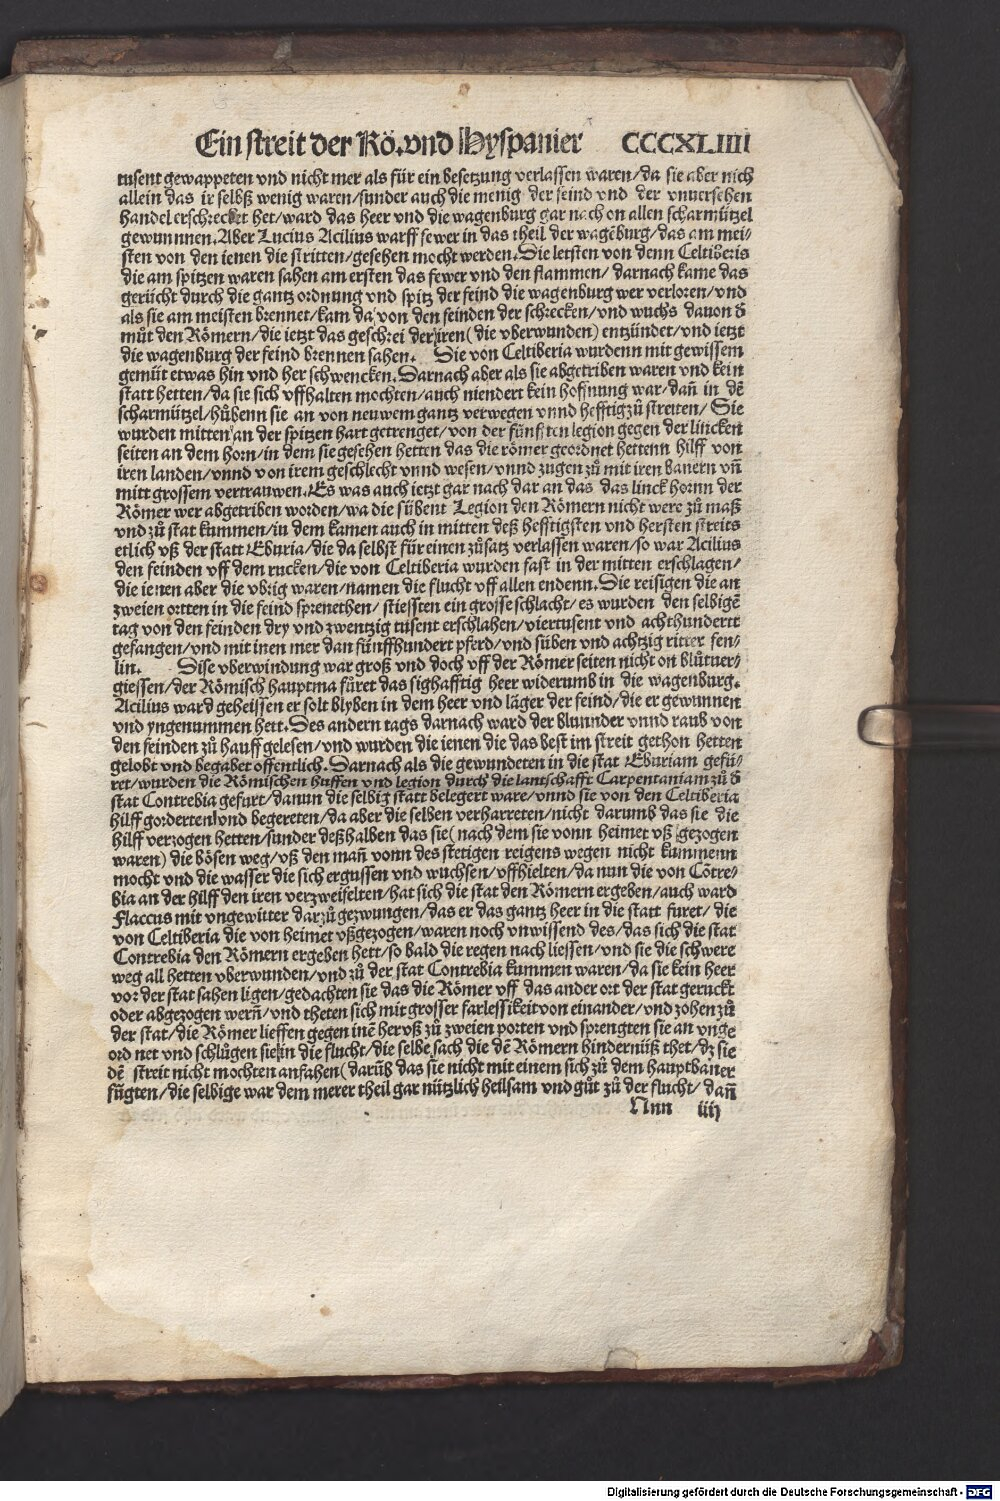 Ein streit der Rö. vnd Hyspanier CCCXLIIII
tusent gewappeten vnd nicht mer als für ein besetzung verlassen waren/da sie aber nich
allein das ir selbß wenig waren/sunder auch die menig der feind vnd der vnuersehen
handel erschrecket het/ward das heer vnd die wagenburg gar nach on allen scharmützel
gewunnnen. Aber Lucius Acilius warff fewer in das theil der wagēburg/das am mei-
sten von den ienen die stritten/gesehen mocht werden. Die letsten von denn Celtiberis
die am spitzen waren sahen am ersten das fewer vnd den flammen/darnach kame das
gerücht durch die gantz ordnung vnd spitz der feind die wagenburg wer verloren/vnd
als sie am meisten brennet/kam da von den feinden der schrecken/vnd wuchs dauon d̃
můt den Römern/die ietzt das geschrei der iren (die vberwunden) entzündet/vnd ietzt
die wagenburg der feind brennen sahen. Die von Celtiberia wurdenn mit gewissem
gemüt etwas hin vnd her schwencken. Darnach aber als sie abgetriben waren vnd kein
statt hetten/da sie sich vffhalten mochten/auch niendert kein hoffnung war/dañ in dē
scharmützel/hůbenn sie an von neuwem gantz verwegen vnnd hefftig zů streiten/Sie
wurden mitten an der spitzen hart getrenget/von der fünfften legion gegen der lincken
seiten an dem horn/in dem sie gesehen hetten das die römer geordnet hettenn hilff von
iren landen/vnnd von irem geschlecht vnnd wesen/vnnd zugen zů mit iren banern vñ
mitt grossem vertrauwen. Es was auch ietzt gar nach dar an das das linck hornn der
Römer wer abgetriben worden/wa die sübent Legion den Römern nicht were zů maß
vnd zů stat kummen/in dem kamen auch in mitten deß hefftigsten vnd hersten streits
etlich vß der statt Eburia/die da selbst für einen zůsatz verlassen waren/so war Acilius
den feinden vff dem rucken/die von Celtiberia wurden fast in der mitten erschlagen/
die ienen aber die vbrig waren/namen die flucht vff allen endenn. Die reisigen die an
zweien ortten in die feind sprenethen/stiessten ein grosse schlacht/es wurden den selbigē
tag von den feinden dry vnd zwentzig tusent erschlahen/viertusent vnd achthundertt
gefangen/vnd mit inen mer dan fünffhundert pferd/vnd süben vnd achtzig ritter fen-
lin. Dise vberwindung war groß vnd doch vff der Römer seiten nicht on blůtuer-
giessen/der Römisch hauptma füret das sighafftig heer widerumb in die wagenburg.
Acilius ward geheissen er solt blyben in dem heer vnd läger der feind/die er gewunnen
vnd yngenummen hett. Des andern tags darnach ward der blunnder vnnd raub von
den feinden zů hauff gelesen/vnd wurden die ienen die das best im streit gethon hetten
gelobt vnd begabet offentlich. Darnach als die gewundeten in die stat Eburiam gefü-
ret/wurden die Römischen huffen vnd legion durch die lantschafft Carpentaniam zů d̃
stat Contrebia gefurt/danun die selbig statt belegert ware/vnnd sie von den Celtiberia
hilff gorderten vnd begereten/da aber die selben verharreten/nicht darumb das sie die
hilff verzogen hetten/sunder deßhalben das sie (nach dem sie vonn heimet vß gezogen
waren) die bösen weg/vß den mañ vonn des stetigen reigens wegen nicht kummenn
mocht vnd die wasser die sich ergussen vnd wuchsen/vffhielten/da nun die von Cōtre-
bia an der hilff den iren verzweifelten/hat sich die stat den Römern ergeben/auch ward
Flaccus mit vngewitter darzů gezwungen/das er das gantz heer in die statt furet/die
von Celtiberia die von heimet vßgezogen/waren noch vnwissend des/das sich die stat
Contrebia den Römern ergeben hett/so bald die regen nach liessen/vnd sie die schwere
weg all hetten vberwunden/vnd zů der stat Contrebia kummen waren/da sie kein heer
vor der stat sahen ligen/gedachten sie das die Römer vff das ander ort der stat geruckt
oder abgezogen wern̄/vnd theten sich mit grosser farlessikeit von einander/vnd zohen zů
der stat/die Römer lieffen gegen inē her vß zů zweien porten vnd sprengten sie an vnge
ord net vnd schlůgen sie in die flucht/die selbe sach die dē Römern hindernüß thet/dz sie
dē streit nicht mochten anfahen (darüb das sie nicht mit einem sich zů dem hauptbaner
fůgten/die selbige war dem merer theil gar nützlich heilsam vnd gůt zů der flucht/dañ
Nnn iiij
Digitalisierung gefördert durch die Deutsche Forschungsgemeinschaft - DFG